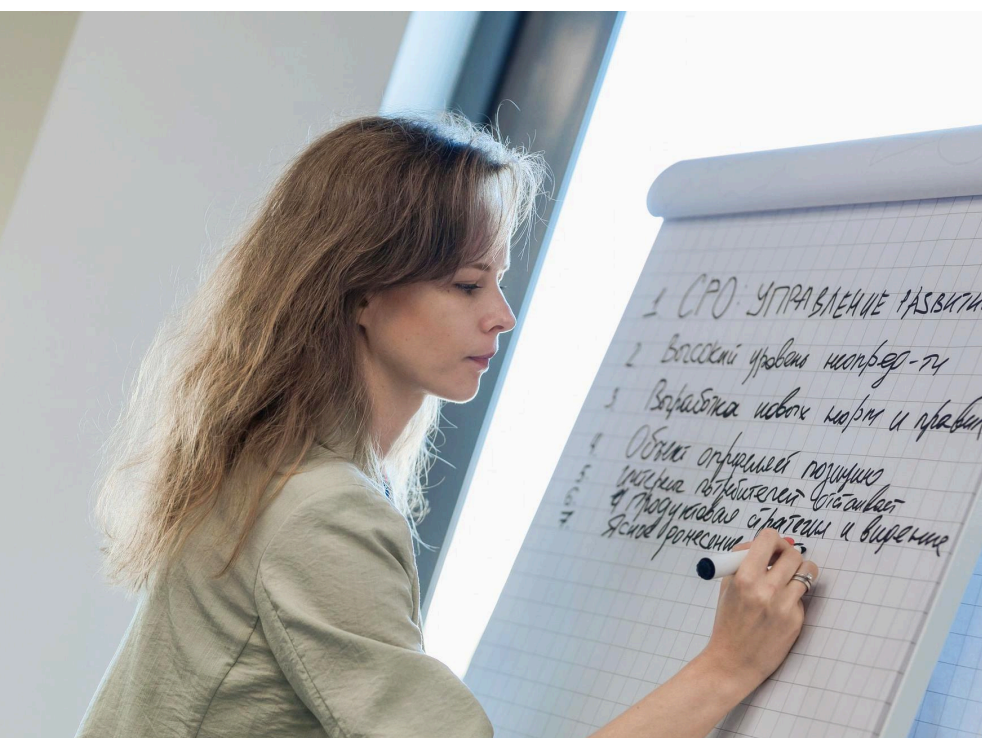 1 CPO: УПРАВЛЕНИЕ РАЗВИТИ
2 Высокий уровень неопред-ти
3 Выработка новых норм и правил
4 Объект определяет позицию
5 интересы потребителей отстаивает
6 продуктовая стратегия и видение
7 Ясное донесение